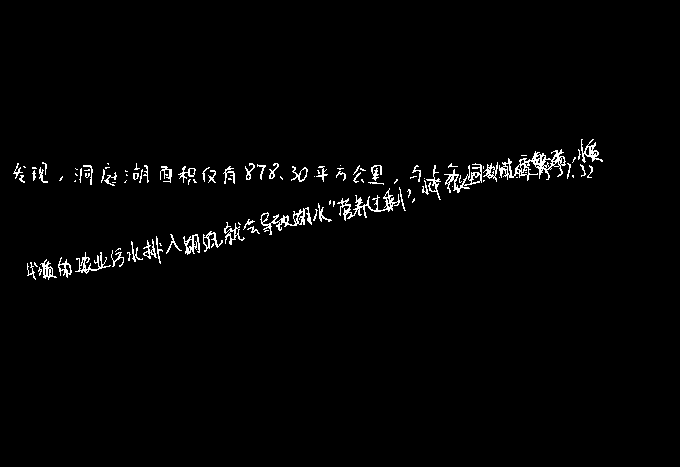 发现，洞庭湖面积仅有878.30平方公里，与上年同
的农业污水排入湖泊，就会导致湖水"营养过剩"，